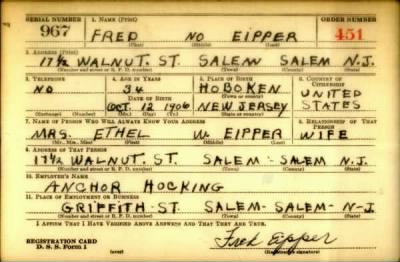 SERIAL NUMBER 1. NAME (Print) ORDER NUMBER
967 FRED NO EIPPER 451
(First) (Middle) (Last)
2. ADDRESS (Print)
17½ WALNUT. ST. SALEM SALEM N.J.
(Number and street or R. F. D. number) (Town) (County) (State)
3. TELEPHONE 4. AGE IN YEARS 5. PLACE OF BIRTH 6. COUNTRY OF CITIZENSHIP
NO 34 HOBOKEN UNITED
DATE OF BIRTH (Town or county)
OCT. 12 1906 NEW JERSEY STATES
(Exchange) (Number) (Mo.) (Day) (Yr.) (State or country)
7. NAME OF PERSON WHO WILL ALWAYS KNOW YOUR ADDRESS 8. RELATIONSHIP OF THAT PERSON
MRS. ETHEL W. EIPPER WIFE
(Mr., Mrs., Miss) (First) (Middle) (Last)
9. ADDRESS OF THAT PERSON
17½ WALNUT. ST. SALEM - SALEM N.J.
(Number and street or R. F. D. number) (Town) (County) (State)
10. EMPLOYER'S NAME
ANCHOR HOCKING
11. PLACE OF EMPLOYMENT OR BUSINESS
GRIFFITH - ST. SALEM - SALEM - N-J.
(Number and street or R. F. D. number) (Town) (County) (State)
I AFFIRM THAT I HAVE VERIFIED ABOVE ANSWERS AND THAT THEY ARE TRUE.
REGISTRATION CARD
D. S. S. Form 1 (over) Fred Eipper